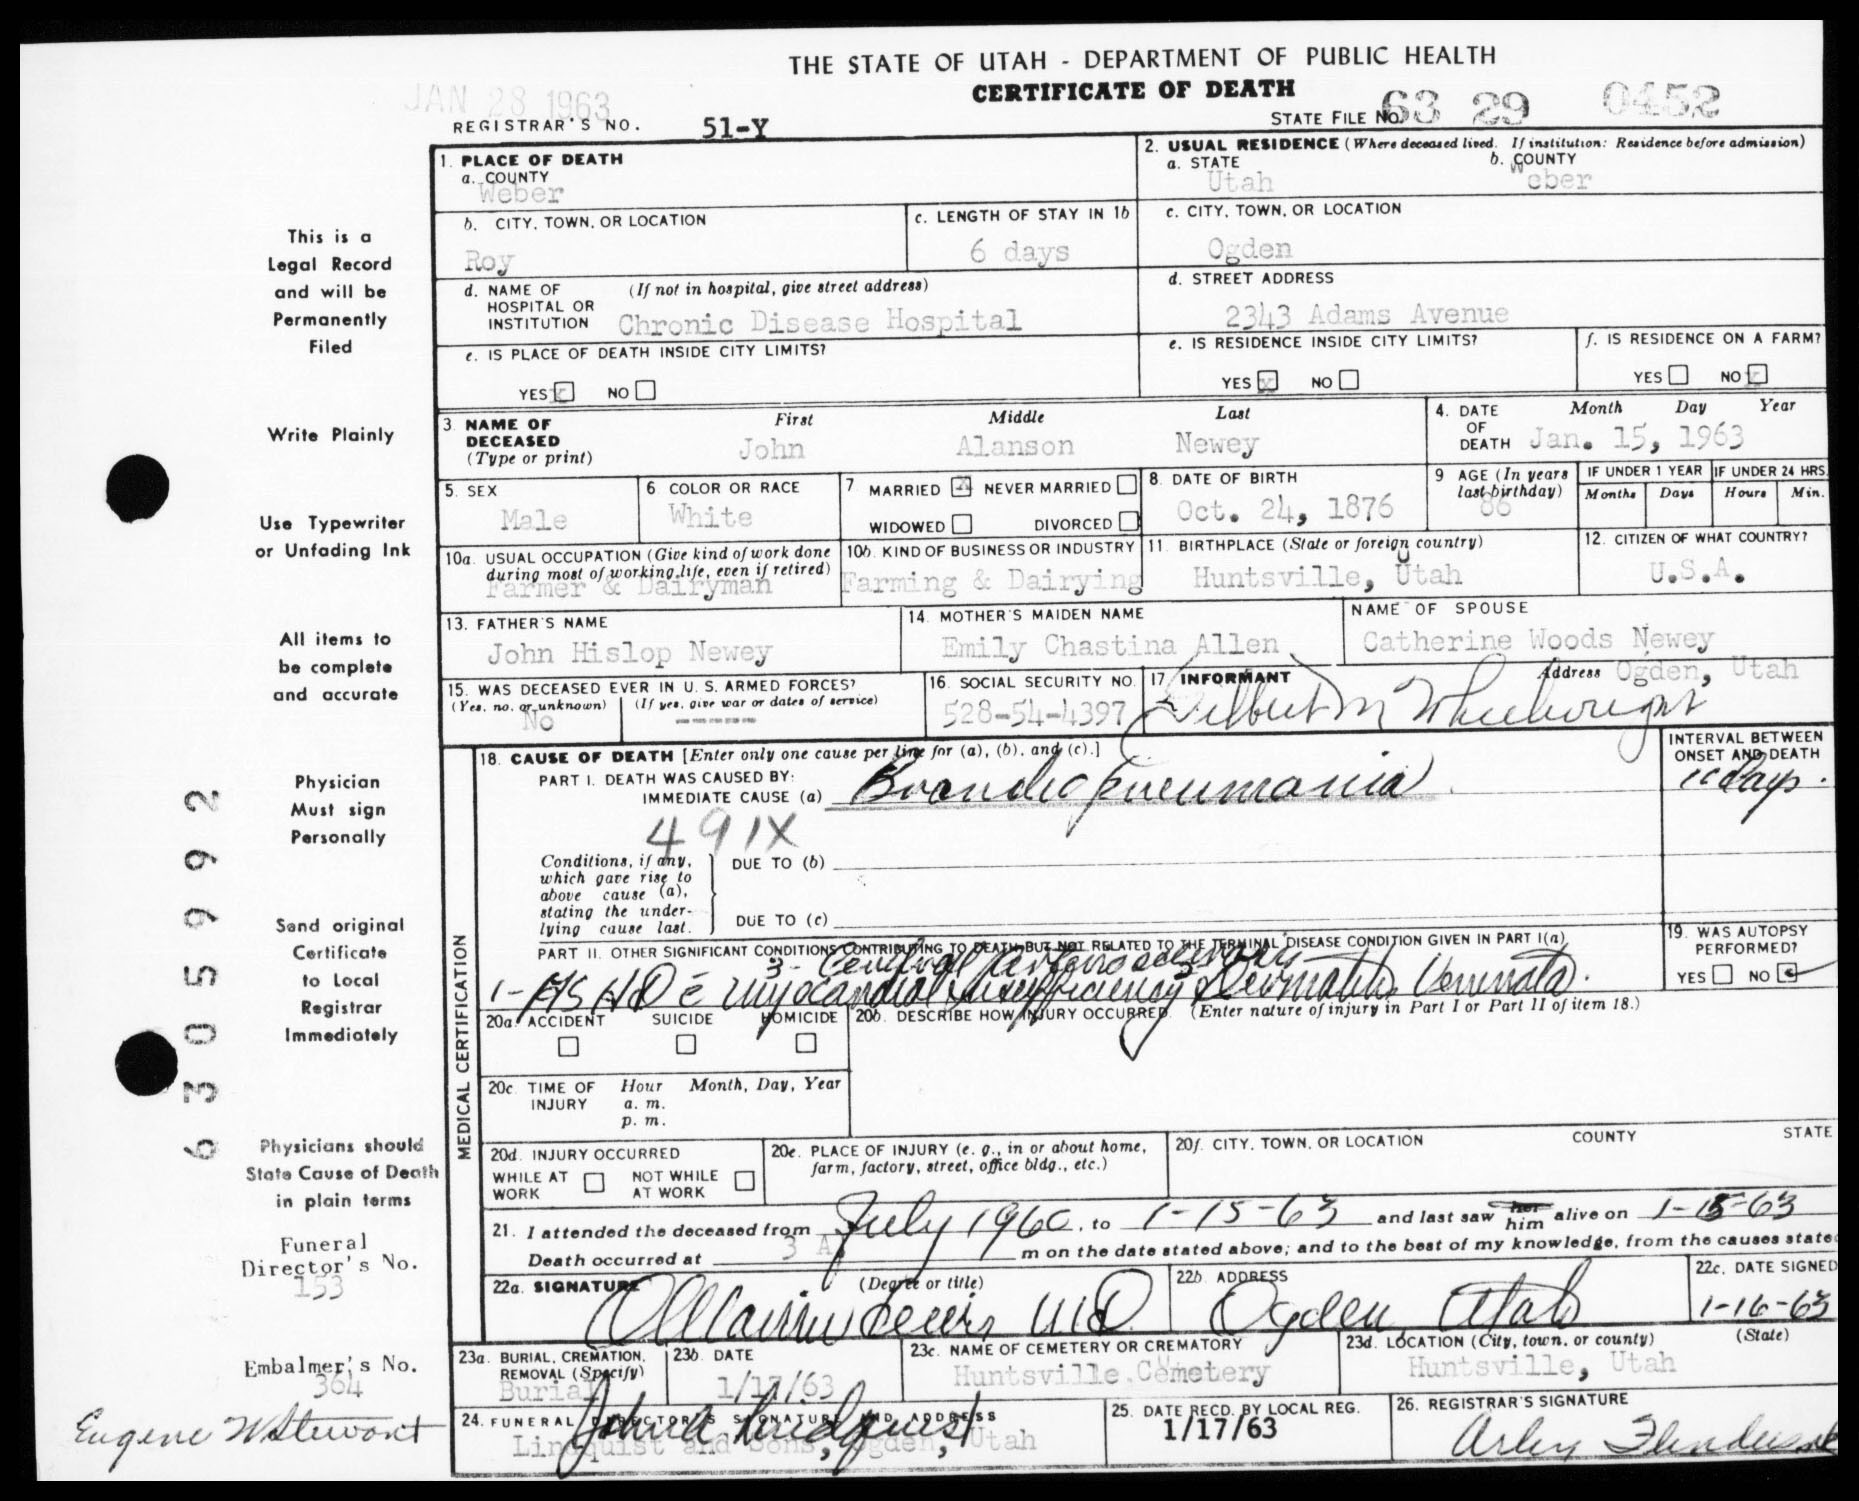 THE STATE OF UTAH - DEPARTMENT OF PUBLIC HEALTH
CERTIFICATE OF DEATH
JAN 28 1963
REGISTRAR'S NO. 51-Y
STATE FILE NO. 63 29 0452
1. PLACE OF DEATH
a. COUNTY
Weber
2. USUAL RESIDENCE (Where deceased lived. If institution: Residence before admission)
a. STATE b. COUNTY
Utah Weber
b. CITY, TOWN, OR LOCATION
Roy
c. LENGTH OF STAY IN 1b
6 days
c. CITY, TOWN, OR LOCATION
Ogden
d. NAME OF (If not in hospital, give street address)
HOSPITAL OR
INSTITUTION Chronic Disease Hospital
d. STREET ADDRESS
2343 Adams Avenue
e. IS PLACE OF DEATH INSIDE CITY LIMITS?
YES x NO
e. IS RESIDENCE INSIDE CITY LIMITS?
YES x NO
f. IS RESIDENCE ON A FARM?
YES NO x
3. NAME OF DECEASED
(Type or print)
First Middle Last
John Alanson Newey
4. DATE OF DEATH
Month Day Year
Jan. 15, 1963
5. SEX
Male
6. COLOR OR RACE
White
7 MARRIED x NEVER MARRIED
WIDOWED DIVORCED
8. DATE OF BIRTH
Oct. 24, 1876
9 AGE (In years
last birthday)
86
IF UNDER 1 YEAR
Months Days
IF UNDER 24 HRS.
Hours Min.
10a. USUAL OCCUPATION (Give kind of work done
during most of working life, even if retired)
Farmer & Dairyman
10b. KIND OF BUSINESS OR INDUSTRY
Farming & Dairying
11. BIRTHPLACE (State or foreign country)
Huntsville, Utah
12. CITIZEN OF WHAT COUNTRY?
U.S.A.
13. FATHER'S NAME
John Hislop Newey
14. MOTHER'S MAIDEN NAME
Emily Chastina Allen
NAME OF SPOUSE
Catherine Woods Newey
15. WAS DECEASED EVER IN U. S. ARMED FORCES?
(Yes, no, or unknown) (If yes, give war or dates of service)
No -------
16. SOCIAL SECURITY NO.
528-54-4397
17. INFORMANT Address Ogden, Utah
M Wheelwright
MEDICAL CERTIFICATION
18. CAUSE OF DEATH [Enter only one cause per line for (a), (b), and (c).]
PART I. DEATH WAS CAUSED BY:
IMMEDIATE CAUSE (a) Broncho pneumonia
INTERVAL BETWEEN
ONSET AND DEATH
days.
491X
Conditions, if any,
which gave rise to
above cause (a),
stating the under-
lying cause last.
DUE TO (b)
DUE TO (c)
PART II. OTHER SIGNIFICANT CONDITIONS CONTRIBUTING TO DEATH BUT NOT RELATED TO THE TERMINAL DISEASE CONDITION GIVEN IN PART I(a)
3- Cerebral Arteriosclerosis
1- ASHD c̄ myocardial insufficiency 2 Dermatitis Venenata.
19. WAS AUTOPSY
PERFORMED?
YES NO
20a. ACCIDENT SUICIDE HOMICIDE
20b. DESCRIBE HOW INJURY OCCURRED. (Enter nature of injury in Part I or Part II of item 18.)
20c. TIME OF INJURY
Hour Month, Day, Year
a. m.
p. m.
20d. INJURY OCCURRED
WHILE AT WORK
NOT WHILE AT WORK
20e. PLACE OF INJURY (e. g., in or about home,
farm, factory, street, office bldg., etc.)
20f. CITY, TOWN, OR LOCATION COUNTY STATE
21. I attended the deceased from July 1960, to 1-15-63 and last saw her him alive on 1-15-63
Death occurred at 3 A m on the date stated above; and to the best of my knowledge, from the causes state
22a. SIGNATURE (Degree or title)
Lewis MD
22b. ADDRESS
Ogden, Utah
22c. DATE SIGNED
1-16-63
23a. BURIAL, CREMATION,
REMOVAL (Specify)
Burial
23b. DATE
1/17/63
23c. NAME OF CEMETERY OR CREMATORY
Huntsville Cemetery
23d. LOCATION (City, town, or county) (State)
Huntsville, Utah
24. FUNERAL DIRECTOR'S SIGNATURE AND ADDRESS
John A Lindquist
Lindquist and Sons, Ogden, Utah
25. DATE RECD. BY LOCAL REG.
1/17/63
26. REGISTRAR'S SIGNATURE
This is a
Legal Record
and will be
Permanently
Filed
Write Plainly
Use Typewriter
or Unfading Ink
All items to
be complete
and accurate
Physician
Must sign
Personally
Send original
Certificate
to Local
Registrar
Immediately
Physicians should
State Cause of Death
in plain terms
Funeral
Director's No.
153
Embalmer's No.
364
Eugene W Stewart
6305992